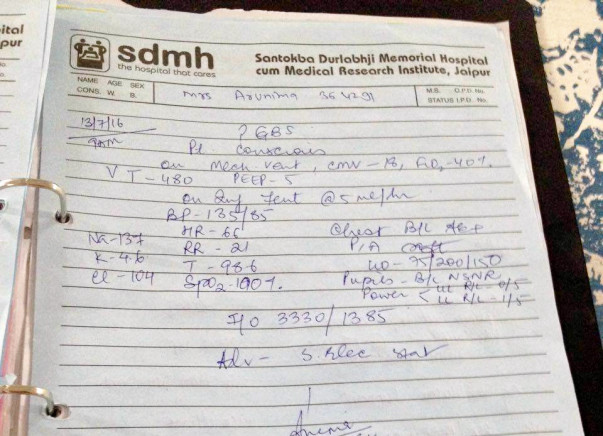 ital
pur
sdmh
the hospital that cares
Santokba Durlabhji Memorial Hospital
cum Medical Research Institute, Jaipur
NAME AGE SEX
CONS. W. B.
Mrs Arunima 364291
M.S. O.P.D. No.
STATUS I.P.D. No.
13/7/16
? GBS
Pt. conscious
on Mech vent, CMV-18, FiO2-40%
VT-480 PEEP-5
on Inf Fent @ 5 ml/hr
BP-135/85
HR-66 Chest B/L AE+
Na-137 RR-21 P/A soft
K-4.6 T-98.6 UO-75/200/150
Cl-104 SpO2-100% Pupils-B/L NSNR
Power < UL R/L-0/5
LL R/L-1/5
I/O 3330/1385
Adv- S. Elec stat